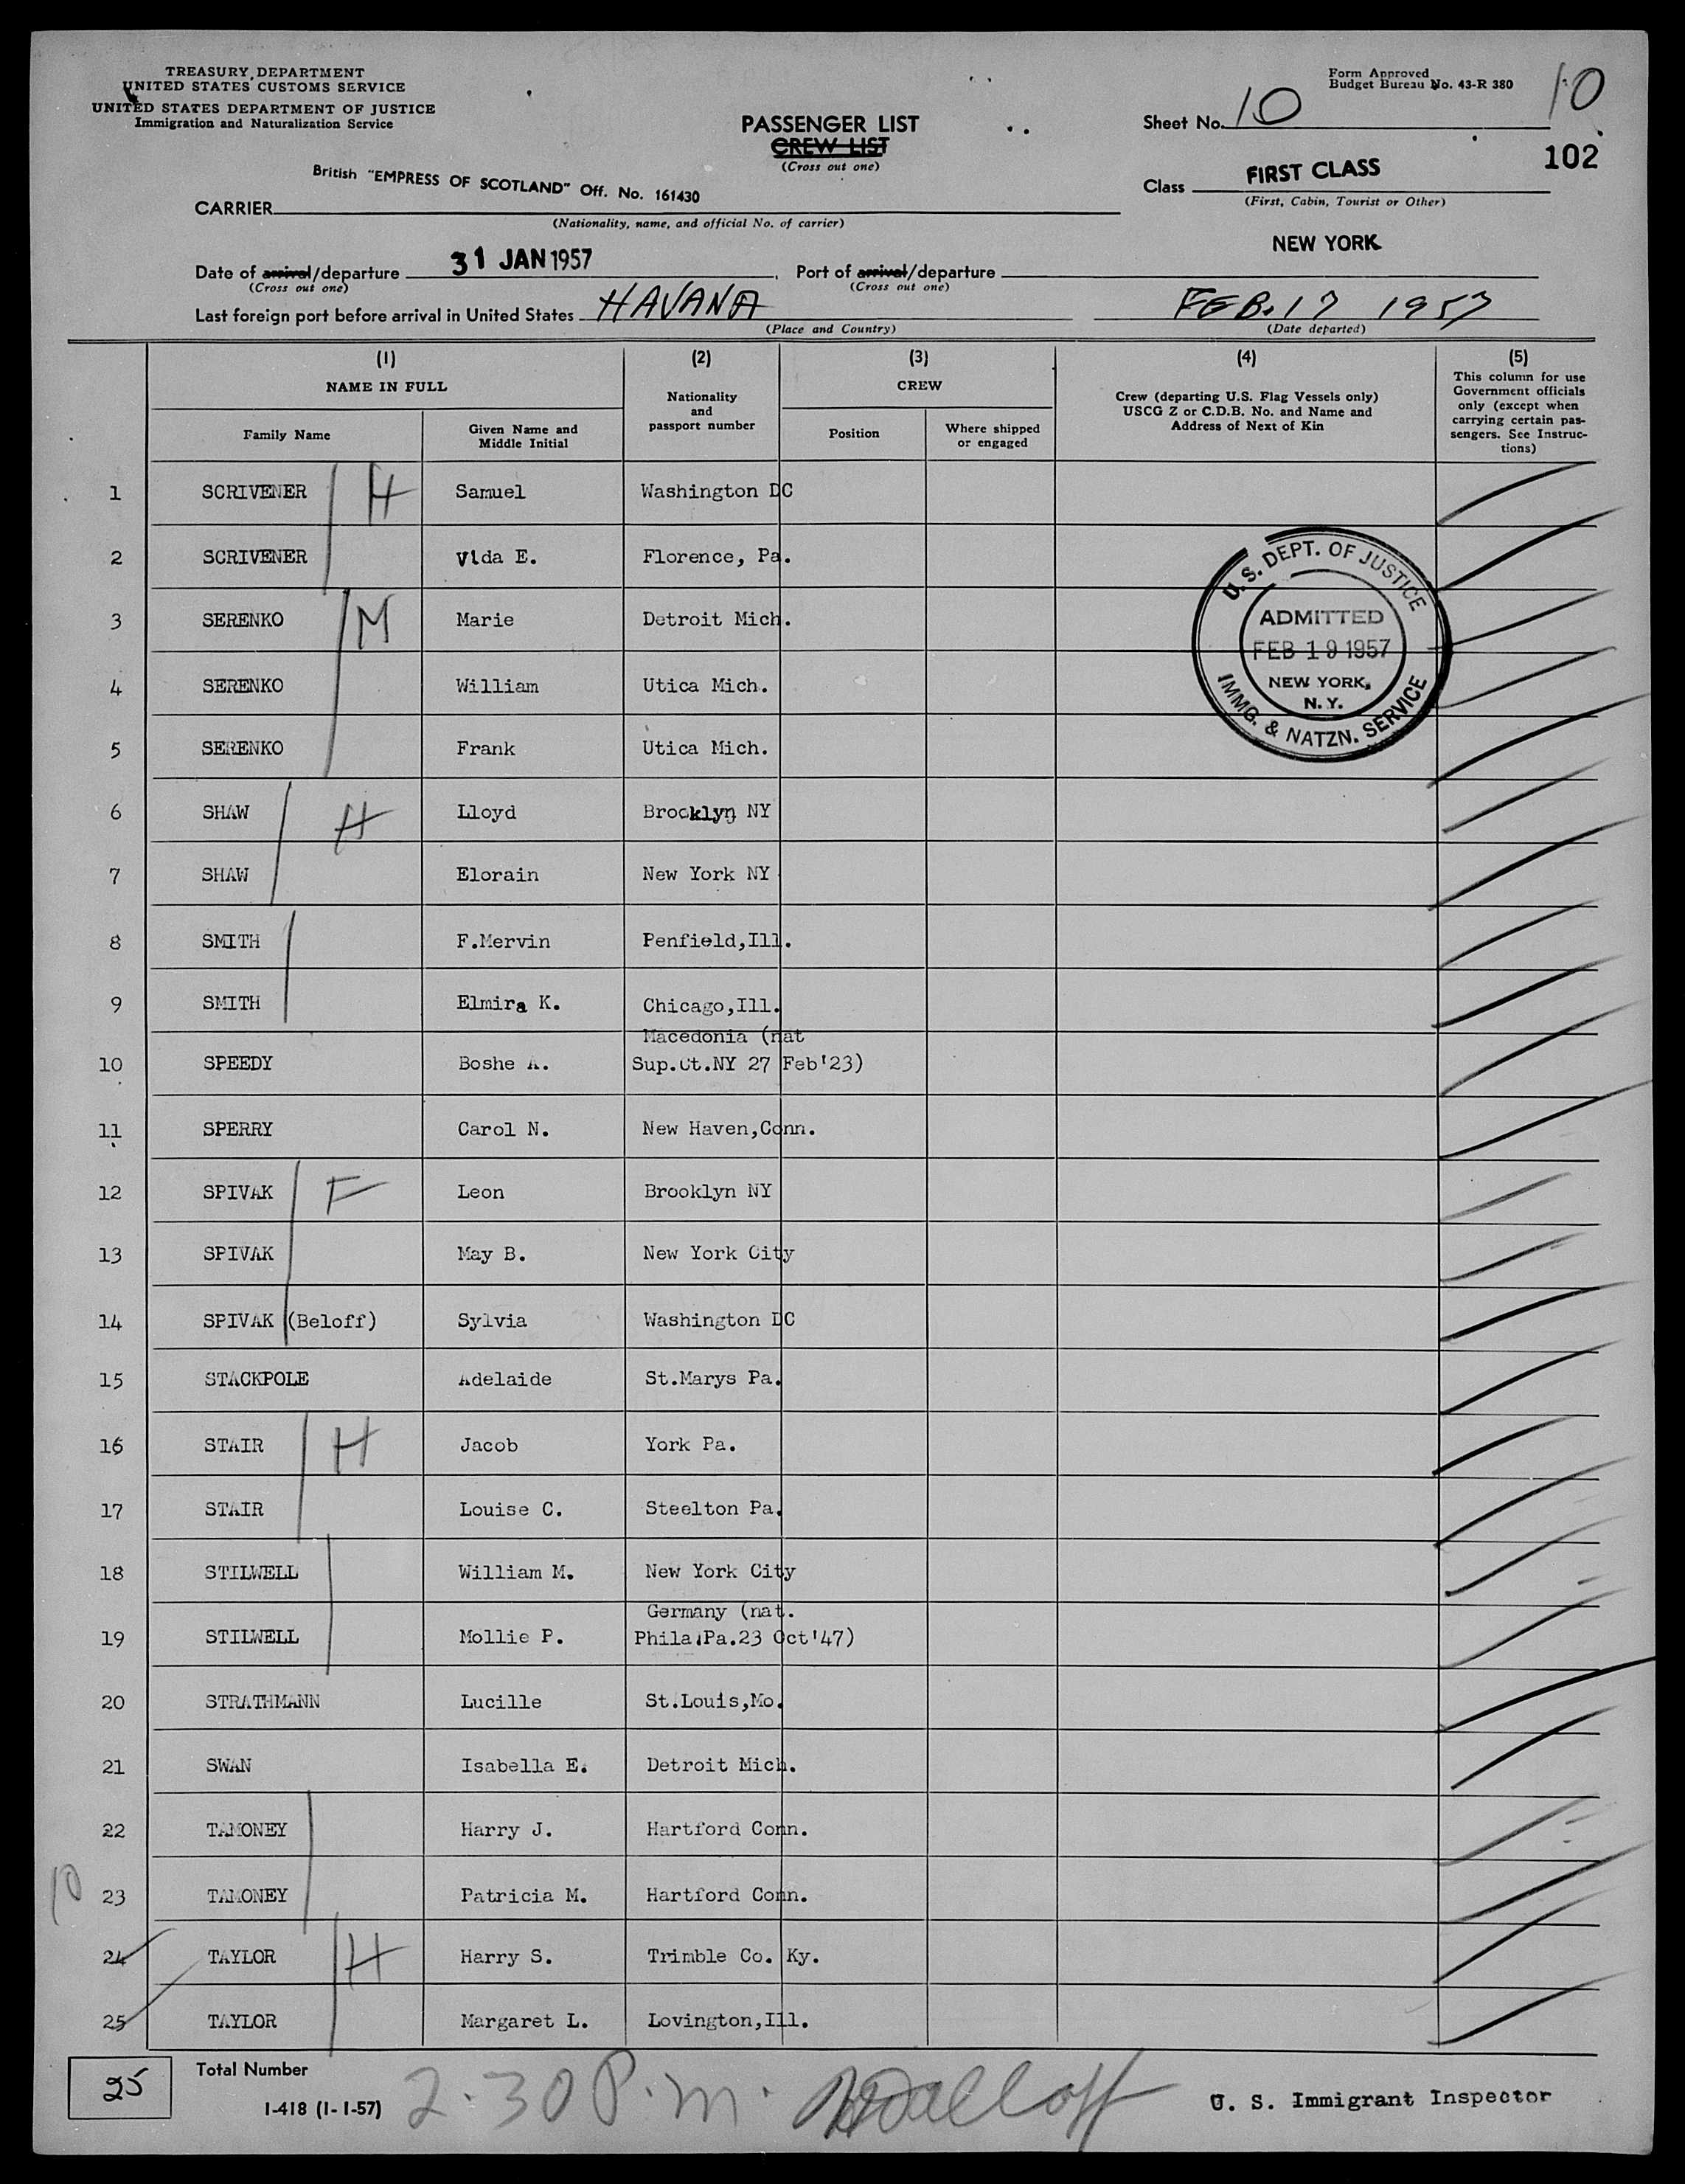 TREASURY DEPARTMENT
UNITED STATES CUSTOMS SERVICE
UNITED STATES DEPARTMENT OF JUSTICE
Immigration and Naturalization Service
Form Approved
Budget Bureau No. 43-R 380
10
PASSENGER LIST
CREW LIST
(Cross out one)
Sheet No. 10
102
British "EMPRESS OF SCOTLAND" Off. No. 161430
CARRIER
(Nationality, name, and official No. of carrier)
Class FIRST CLASS
(First, Cabin, Tourist or Other)
NEW YORK
Date of arrival/departure 31 JAN 1957, Port of arrival/departure
(Cross out one) (Cross out one)
Last foreign port before arrival in United States HAVANA FEB. 17 1957
(Place and Country) (Date departed)
(1) (2) (3) (4) (5)
NAME IN FULL
Nationality and passport number
CREW
Crew (departing U.S. Flag Vessels only)
USCG Z or C.D.B. No. and Name and
Address of Next of Kin
This column for use
Government officials
only (except when
carrying certain pas-
sengers. See Instruc-
tions)
Family Name
Given Name and Middle Initial
Position
Where shipped or engaged
1 SCRIVENER H Samuel Washington DC
2 SCRIVENER Vida E. Florence, Pa.
3 SERENKO M Marie Detroit Mich.
4 SERENKO William Utica Mich.
5 SERENKO Frank Utica Mich.
U.S. DEPT. OF JUSTICE
ADMITTED
FEB 19 1957
NEW YORK,
N.Y.
IMMG. & NATZN. SERVICE
6 SHAW H Lloyd Brooklyn NY
7 SHAW Elorain New York NY
8 SMITH F.Mervin Penfield,Ill.
9 SMITH Elmira K. Chicago,Ill.
Macedonia (nat
10 SPEEDY Boshe A. Sup.Ct.NY 27 Feb'23)
11 SPERRY Carol N. New Haven,Conn.
12 SPIVAK F Leon Brooklyn NY
13 SPIVAK May B. New York City
14 SPIVAK (Beloff) Sylvia Washington DC
15 STACKPOLE Adelaide St.Marys Pa.
16 STAIR H Jacob York Pa.
17 STAIR Louise C. Steelton Pa.
18 STILWELL William M. New York City
Germany (nat.
19 STILWELL Mollie P. Phila.Pa.23 Oct'47)
20 STRATHMANN Lucille St.Louis,Mo.
21 SWAN Isabella E. Detroit Mich.
22 TAMONEY Harry J. Hartford Conn.
10
23 TAMONEY Patricia M. Hartford Conn.
24 TAYLOR H Harry S. Trimble Co. Ky.
25 TAYLOR Margaret L. Lovington,Ill.
25 Total Number
I-418 (1-1-57)
2.30 P.m.
U. S. Immigrant Inspector